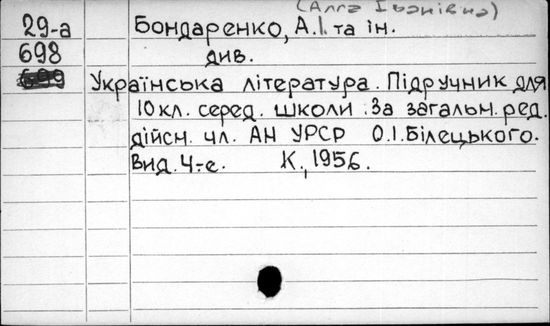 (Алла Іванівна)
29-а Бондаренко, А.І. та ін.
698 див.
699 Українська література. Підручник для
10 кл. серед. школи. За загальн. ред.
дійсн. чл. АН УРСР О.І.Білецького.
Вид. 4-е. К., 1956.